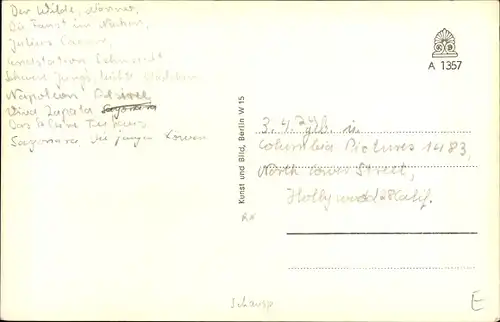 Der Wilde, Männer,
Die Faust im Nacken,
Julius Caesar,
Endstation Sehnsucht
Schwere Jungs, leichte Mädchen
Napoleon Desiree
Viva Zapata Sayonara
Das kleine Teehaus
Sayonara, die jungen Löwen
A 1357
Kunst und Bild, Berlin W 15
3.4. in
Columbia Pictures 1483,
North Gower Street,
Hollywood 28 Kalif.
Schausp
E